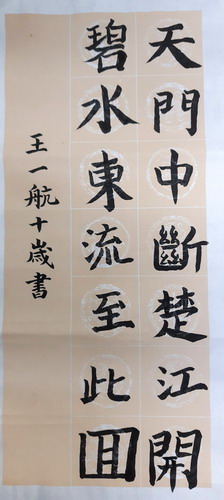 天門中斷楚江開
碧水東流至此囬
王一航十歲書